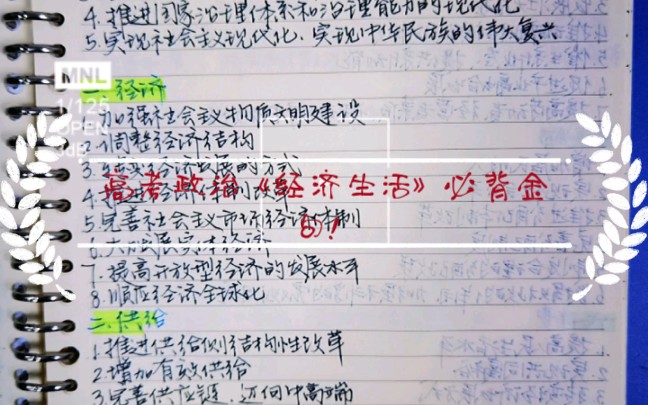 4.推进国家治理体系和治理能力的现代化
5.实现社会主义现代化、实现中华民族的伟大复兴
MNL
1/125
OPEN
一.经济
1.加强社会主义物质文明建设
2.调整经济结构
3.转变经济发展的方式
高考政治《经济生活》必背金
句!
5.完善社会主义市场经济体制
6.大力发展实体经济
7.提高开放型经济的发展水平
8.顺应经济全球化
二.供给
1.推进供给侧结构性改革
2.增加有效供给
3.完善供应链、迈向中高端